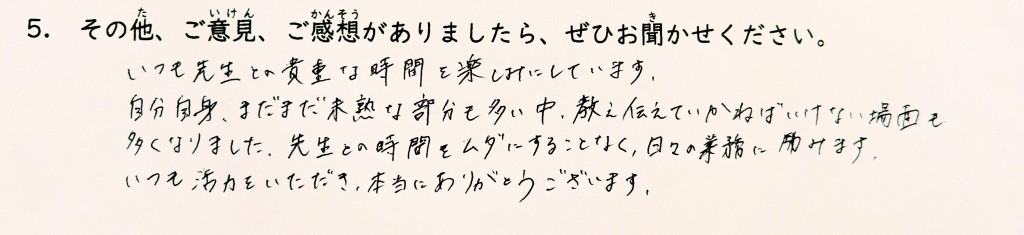 5. その他、ご意見、ご感想がありましたら、ぜひお聞かせください。
いつも先生との貴重な時間を楽しみにしています。
自分自身、まだまだ未熟な部分も多い中、教え伝えていかねばいけない場面も
多くなりました。先生との時間をムダにすることなく、日々の業務に励みます。
いつも活力をいただき、本当にありがとうございます。